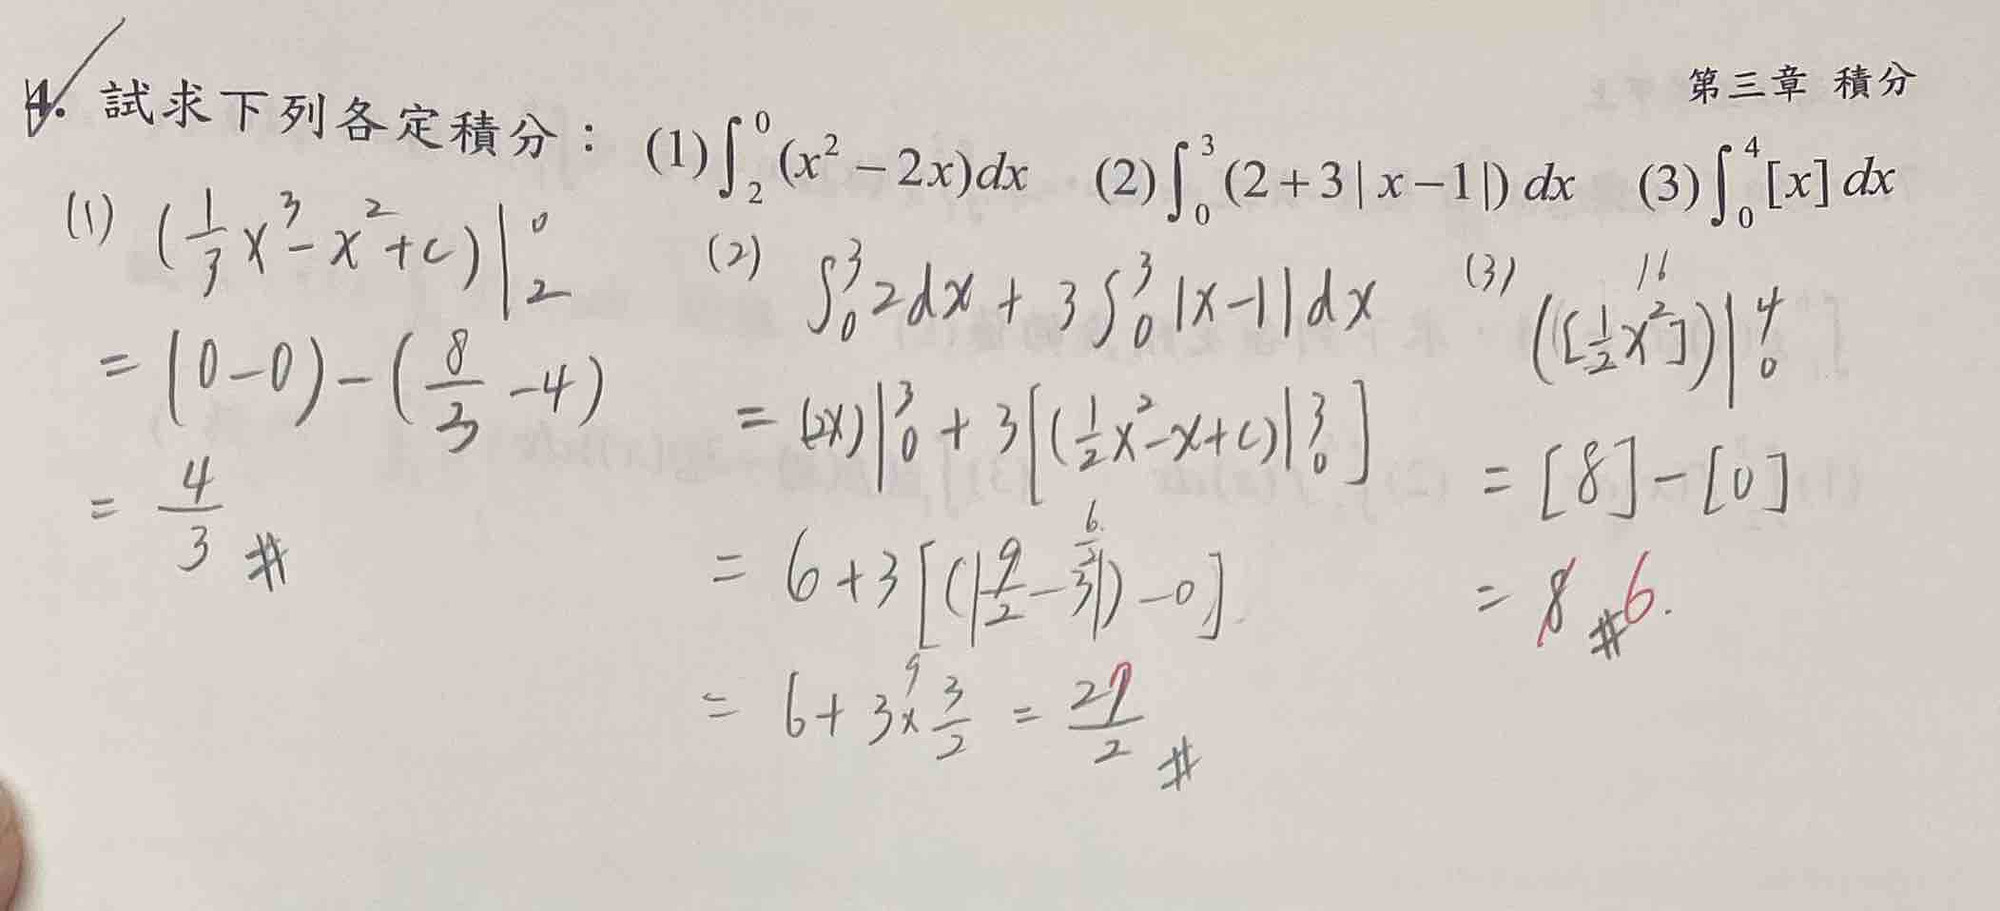 第三章 積分
4. 試求下列各定積分：(1)∫₂⁰(x²－2x)dx (2)∫₀³(2+3|x－1|)dx (3)∫₀⁴[x]dx
(1) (1/3 x³-x²+c)|₂⁰
= (0-0)-(8/3-4)
= 4/3 #
(2) ∫₀³2dx+3∫₀³|x-1|dx
= (2x)|₀³+3[(1/2 x²-x+c)|₀³]
= 6+3[(|9/2-3|)-0]
6/2
= 6+3×3/2 = 29/2 #
9
(3) ([1/2 x²])|₀⁴
16
= [8]-[0]
= 8 # 6.